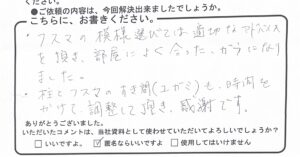 ください。
●ご依頼の内容は、今回解決出来ましたでしょうか。
こちらに、お書きください。
・フスマの模様選びでは適切なアドバイス
を頂き、部屋によく合った、ガラになり
ました。
・柱とフスマのすき間(ユガミ)も、時間を
かけて、調整して頂き、感謝です。
ありがとうございました。
いただいたコメントは、当社資料として使わせていただいてよろしいでしょうか?
□いいですよ。 ☑匿名ならいいですよ □使用してはいけません